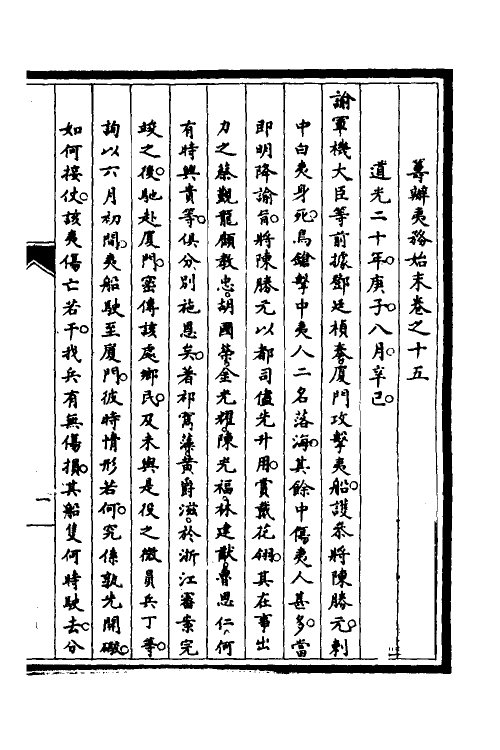 籌辦夷務始末卷之十五
道光二十年庚子八月辛巳
諭軍機大臣等前據鄧廷楨奏廈門攻擊夷船護叅將陳勝元刺
中白夷身死鳥鎗擊中夷人二名落海其餘中傷夷人甚多當
即明降諭旨將陳勝元以都司儘先升用賞戴花翎其在事出
力之蔡觀龍顧教忠胡國榮金光耀陳光福林建猷魯思仁何
有時與貴等俱分別施恩矣著祁寯藻黃爵滋於浙江審案完
竣之後馳赴廈門密傳該處鄉民及未與是役之微員兵丁等
詢以六月初間夷船駛至廈門彼時情形若何究係孰先開礮
如何接仗該夷傷亡若干我兵有無傷損其船隻何時駛去分
一